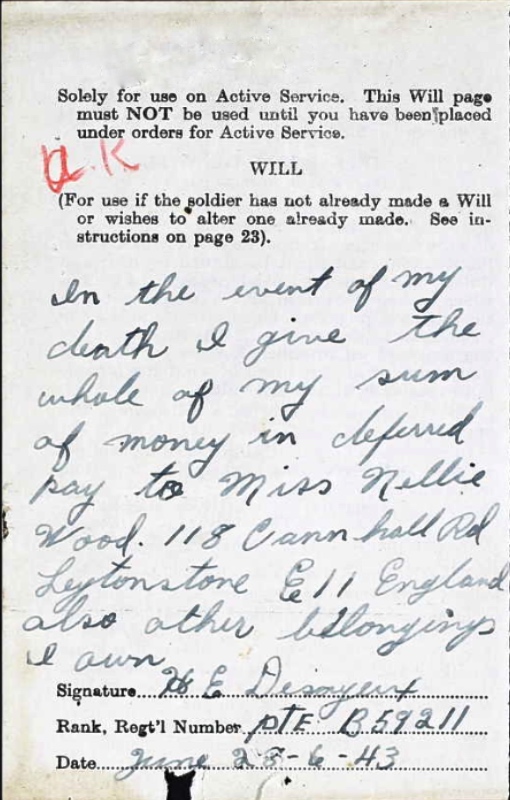 Solely for use on Active Service. This Will page
must NOT be used until you have been placed
under orders for Active Service.
a.R
WILL
(For use if the soldier has not already made a Will
or wishes to alter one already made. See in-
structions on page 23).
In the event of my
death I give the
whole of my sum
of money in deferred
pay to Miss Nellie
Wood. 118 Cann hall Rd
Leytonstone E 11 England
also other belongings
I own
Signature H E
Rank, Regt'l Number PTE B59211
Date June -6-43